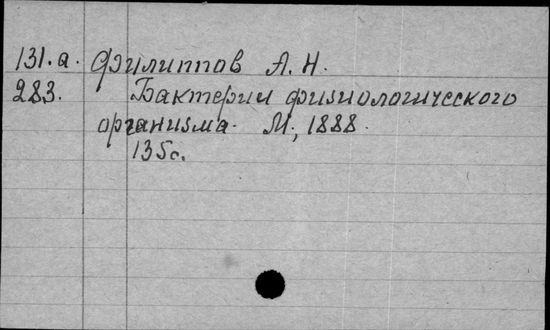 131.а. Филиппов А. Н.
283. Бактерии физиологического
организма. М., 1888.
135с.